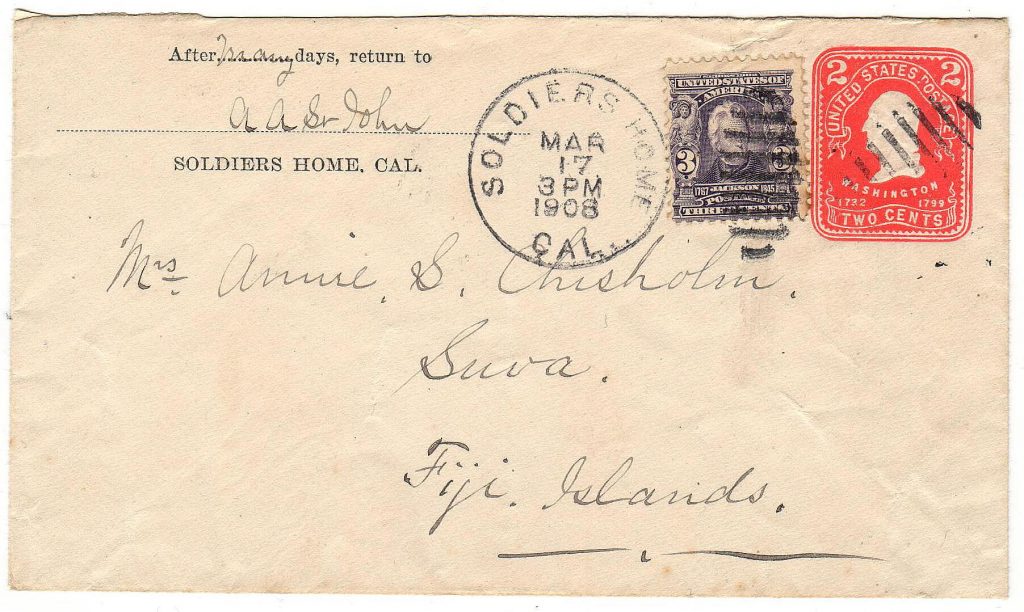 After many days, return to
A A St John
SOLDIERS HOME, CAL.
SOLDIERS HOME
MAR
17
3 PM
1908
CAL.
UNITED STATES OF
AMERICA
3 3
1767 JACKSON 1845
POSTAGE
THREE CENTS
2 2
UNITED STATES POSTAGE
WASHINGTON
1732 1799
TWO CENTS
Mrs Annie. S. Chisholm.
Suva.
Fiji. Islands.